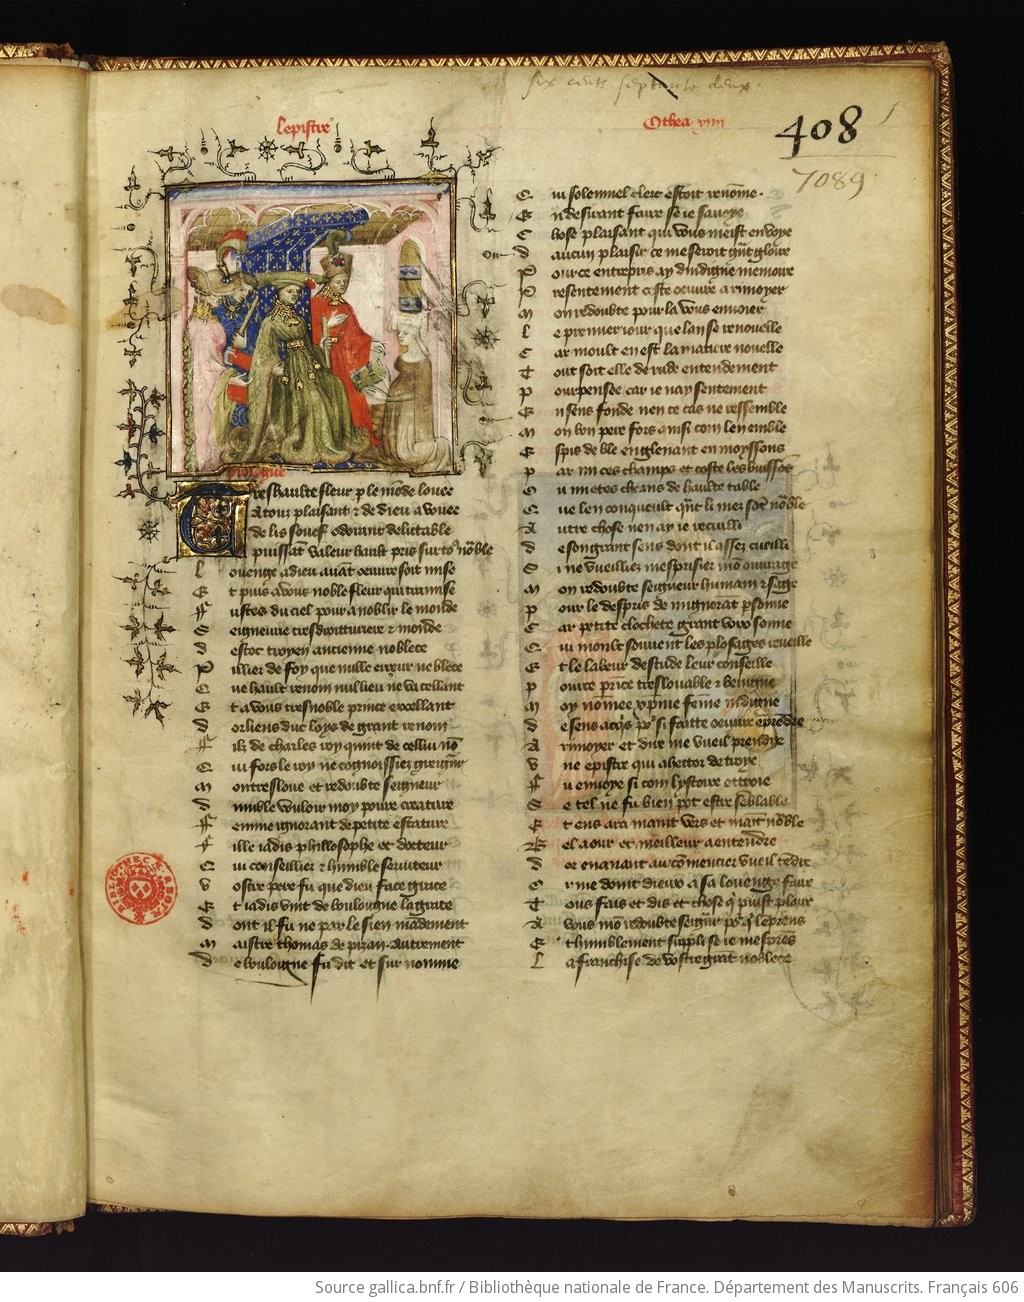 six cents septante deux.
Lepistre
Othea. viiii
408
7089
prologue
Treshaulte fleur p le mōde louee
A touz plaisant ⁊ de dieu avouee
de lis souef odorant delictable
puissāt valeur hault pris sur toᵘ nōble
Louenge a dieu auāt oeuvre soit mise
Et puis a vous noble fleur qui transmise
Fustes du ciel pour anoblir le monde
Seigneurie tresdroitturiere ⁊ monde
destoc troyen ancienne noblece
Pillier de foy que nulle erreur ne blece
Que hault renom nul lieu ne va cellant
Et a vous tresnoble prince excellant
dorliens duc loys de grant renom
Filz de charles roy quint de cellui nō
Qui fors le roy ne cognoissiez greigneur
Mon tresloue et redoubte seigneur
dumble vouloir moy poure creature
Femme ignorant de petite estature
Fille iadis philosophe et docteur
Qui conseillier ⁊ humble serviteur
Vostre pere fu que dieu face grace
Et iadis vint de boulongne la grace
dont il fu ne par le sien mādement
Maistre thomas de pizan. Autrement
de boulongne fu dit et surnomme
Qui solemnel clerc estoit renōme.
En desirant faire se ie sauoye
Chose plaisant qui vous meist en voye
daucun plaisir ce me seroit grāt gloire
Pour ce entrepris ay dindigne memoire
Presentement ceste oeuvre a rimoyer
Mon redoubte pour la vous envoier
Le premier iour que lan se renouvelle
Car moult en est la matiere nouvelle
Tout soit elle de rude entendement
Pourpensee car ie nay sentement
En sens fonde nen ce cas ne ressemble
Mon bon pere fors ainsi com len emble
Espis de ble en glenant en moyssons
Par mi ces champs et coste les buissōs
Ou mietes cheans de haulte table
Que len conqueult qᵗ li mez sōt nōble
Autre chose nen ay ie recueilli
de son grant sens dont il assez cueilli
Si ne vueilliez mesprisier mō ouvrage
Mon redoubte seigneur humain ⁊ sage
Pour le despris de mignorāt psōnne
Car petite clochete grant voix sonne
Qui moult souvent les plꝰ sages reveille
Et le labeur destude leur conseille
Pource prīce treslouable ⁊ benigne
Moy nōmee xpīne fēme indigne
de sens acqs poʳ si faitte oeuvre ēprēdre
A rimoyer et dire me vueil prendre
Vne epistre qui a hector de troye
Fu envoye si com lystoire ottroie
Se tel ne fu bien pot estre sēblable
Et en sara maint vers et maīt nōble
Bel a oir et meilleur a entendre
dor en auant au cōmencier vueil tēdre
Or me doint dieux a sa louenge faire
Tous fais et dis et chose q̄ puist plaire
A vous mō redoubte seigʳ poʳ q̄ lē prens
Et humblement suppli se ie mesprēs
La franchise de vostre grāt noblece
BIBLIOTHECAE REGIAE
Source gallica.bnf.fr / Bibliothèque nationale de France. Département des Manuscrits. Français 606